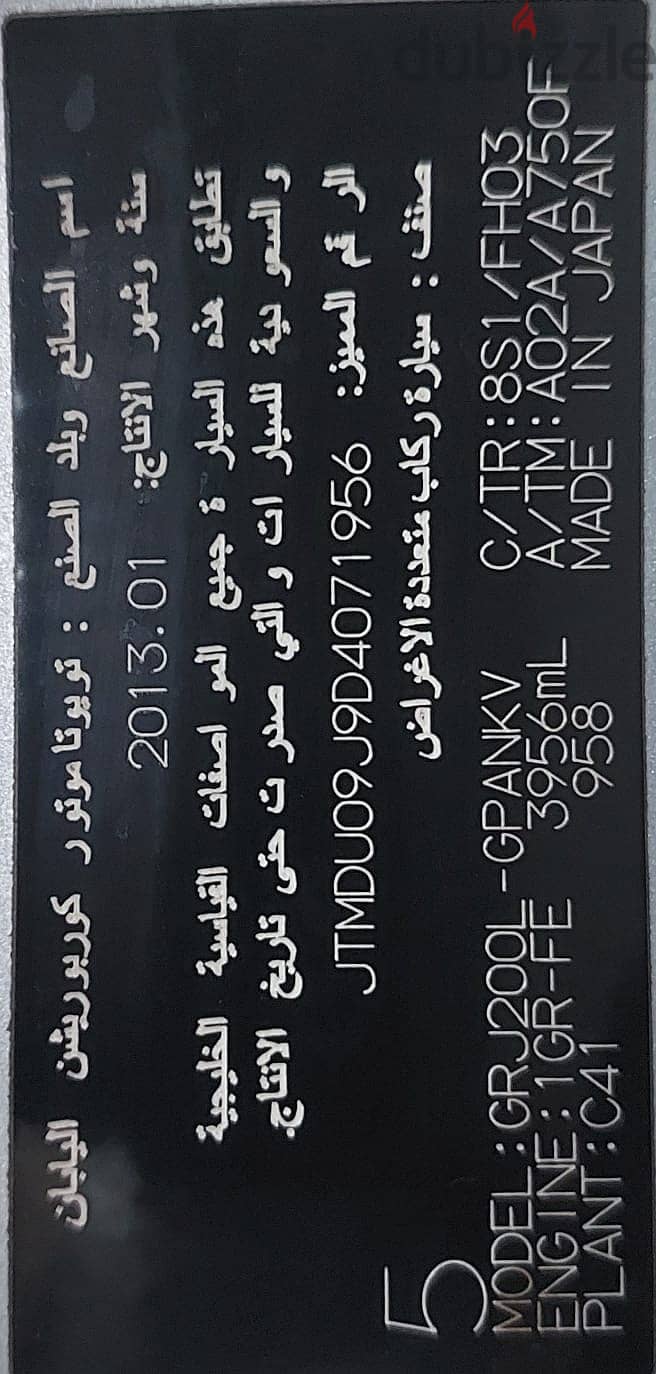 dubizzle
اسم الصانع وبلد الصنع : تويوتا موتور كوربوريشن اليابان
سنة وشهر الانتاج: 2013.01
تطابق هذه السيارة جميع المواصفات القياسية الخليجية
والسعودية للسيارات والتي صدرت حتى تاريخ الانتاج.
الرقم المميز: JTMDU09J9D4071956
صنف : سيارة ركاب متعددة الاغراض
5
MODEL:GRJ200L-GPANKV C/TR:8S1/FH03
ENGINE:1GR-FE 3956mL A/TM:A02A/A750F
PLANT:C41 958 MADE IN JAPAN